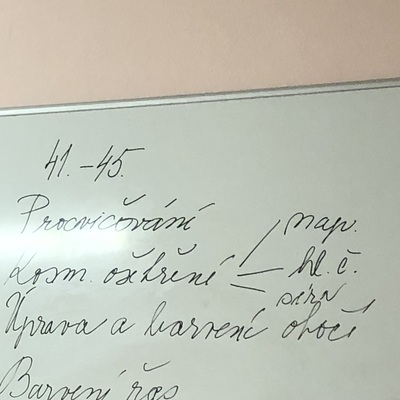 41.-45.
Procvičování
Kosm. ošetření
nap.
hl. č.
Úprava a barvení obočí
Barvení řas